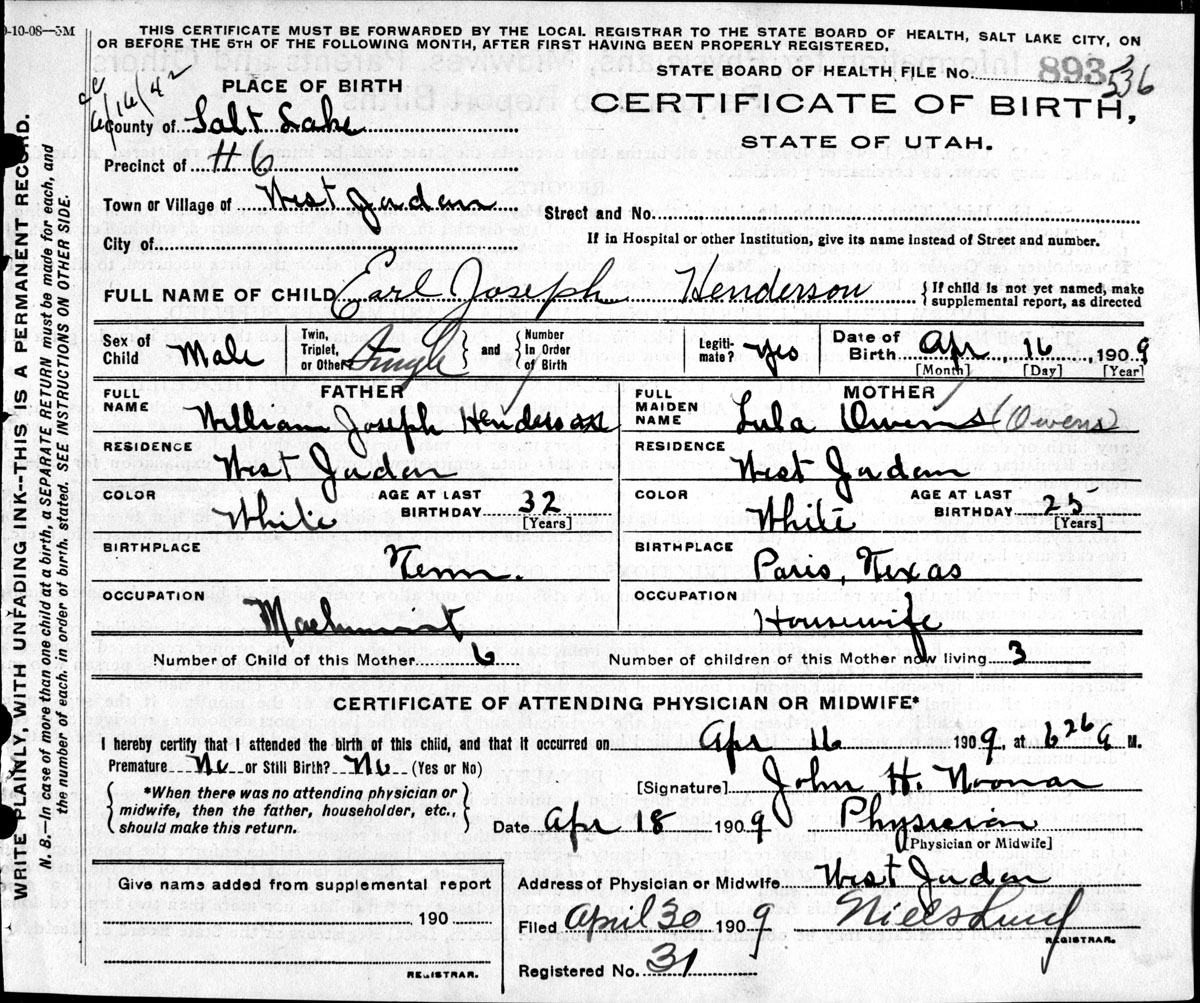 0-10-08—5M
THIS CERTIFICATE MUST BE FORWARDED BY THE LOCAL REGISTRAR TO THE STATE BOARD OF HEALTH, SALT LAKE CITY, ON
OR BEFORE THE 5TH OF THE FOLLOWING MONTH, AFTER FIRST HAVING BEEN PROPERLY REGISTERED.
STATE BOARD OF HEALTH FILE No. 893 536
CERTIFICATE OF BIRTH,
STATE OF UTAH.
PLACE OF BIRTH
6/16/42
County of Salt Lake
Precinct of #6
Town or Village of West Jordan
Street and No.
City of
If in Hospital or other Institution, give its name instead of Street and number.
FULL NAME OF CHILD Earl Joseph Henderson { If child is not yet named, make
supplemental report, as directed
Sex of Child Male
Twin, Triplet, or Other Single } and { Number in Order of Birth
Legitimate? yes
Date of Birth Apr 16, 1909
[Month] [Day] [Year]
FATHER
FULL NAME William Joseph Henderson
RESIDENCE West Jordan
COLOR White
AGE AT LAST BIRTHDAY 32
[Years]
BIRTHPLACE Tenn.
OCCUPATION Machinist
MOTHER
FULL MAIDEN NAME Lula Owens (Owens)
RESIDENCE West Jordan
COLOR White
AGE AT LAST BIRTHDAY 25
[Years]
BIRTHPLACE Paris, Texas
OCCUPATION Housewife
Number of Child of this Mother 6
Number of children of this Mother now living 3
CERTIFICATE OF ATTENDING PHYSICIAN OR MIDWIFE*
I hereby certify that I attended the birth of this child, and that it occurred on Apr 16 1909, at 6 26 a M.
Premature No or Still Birth? No (Yes or No)
[Signature] John H. Noonan
{ *When there was no attending physician or
midwife, then the father, householder, etc.,
should make this return. }
Date Apr 18 1909 Physician
[Physician or Midwife]
Give name added from supplemental report
190
REGISTRAR.
Address of Physician or Midwife West Jordan
Filed April 30 1909 Niels Lind
REGISTRAR.
Registered No. 31
WRITE PLAINLY, WITH UNFADING INK--THIS IS A PERMANENT RECORD.
N. B.—In case of more than one child at a birth, a SEPARATE RETURN must be made for each, and
the number of each, in order of birth, stated. SEE INSTRUCTIONS ON OTHER SIDE.